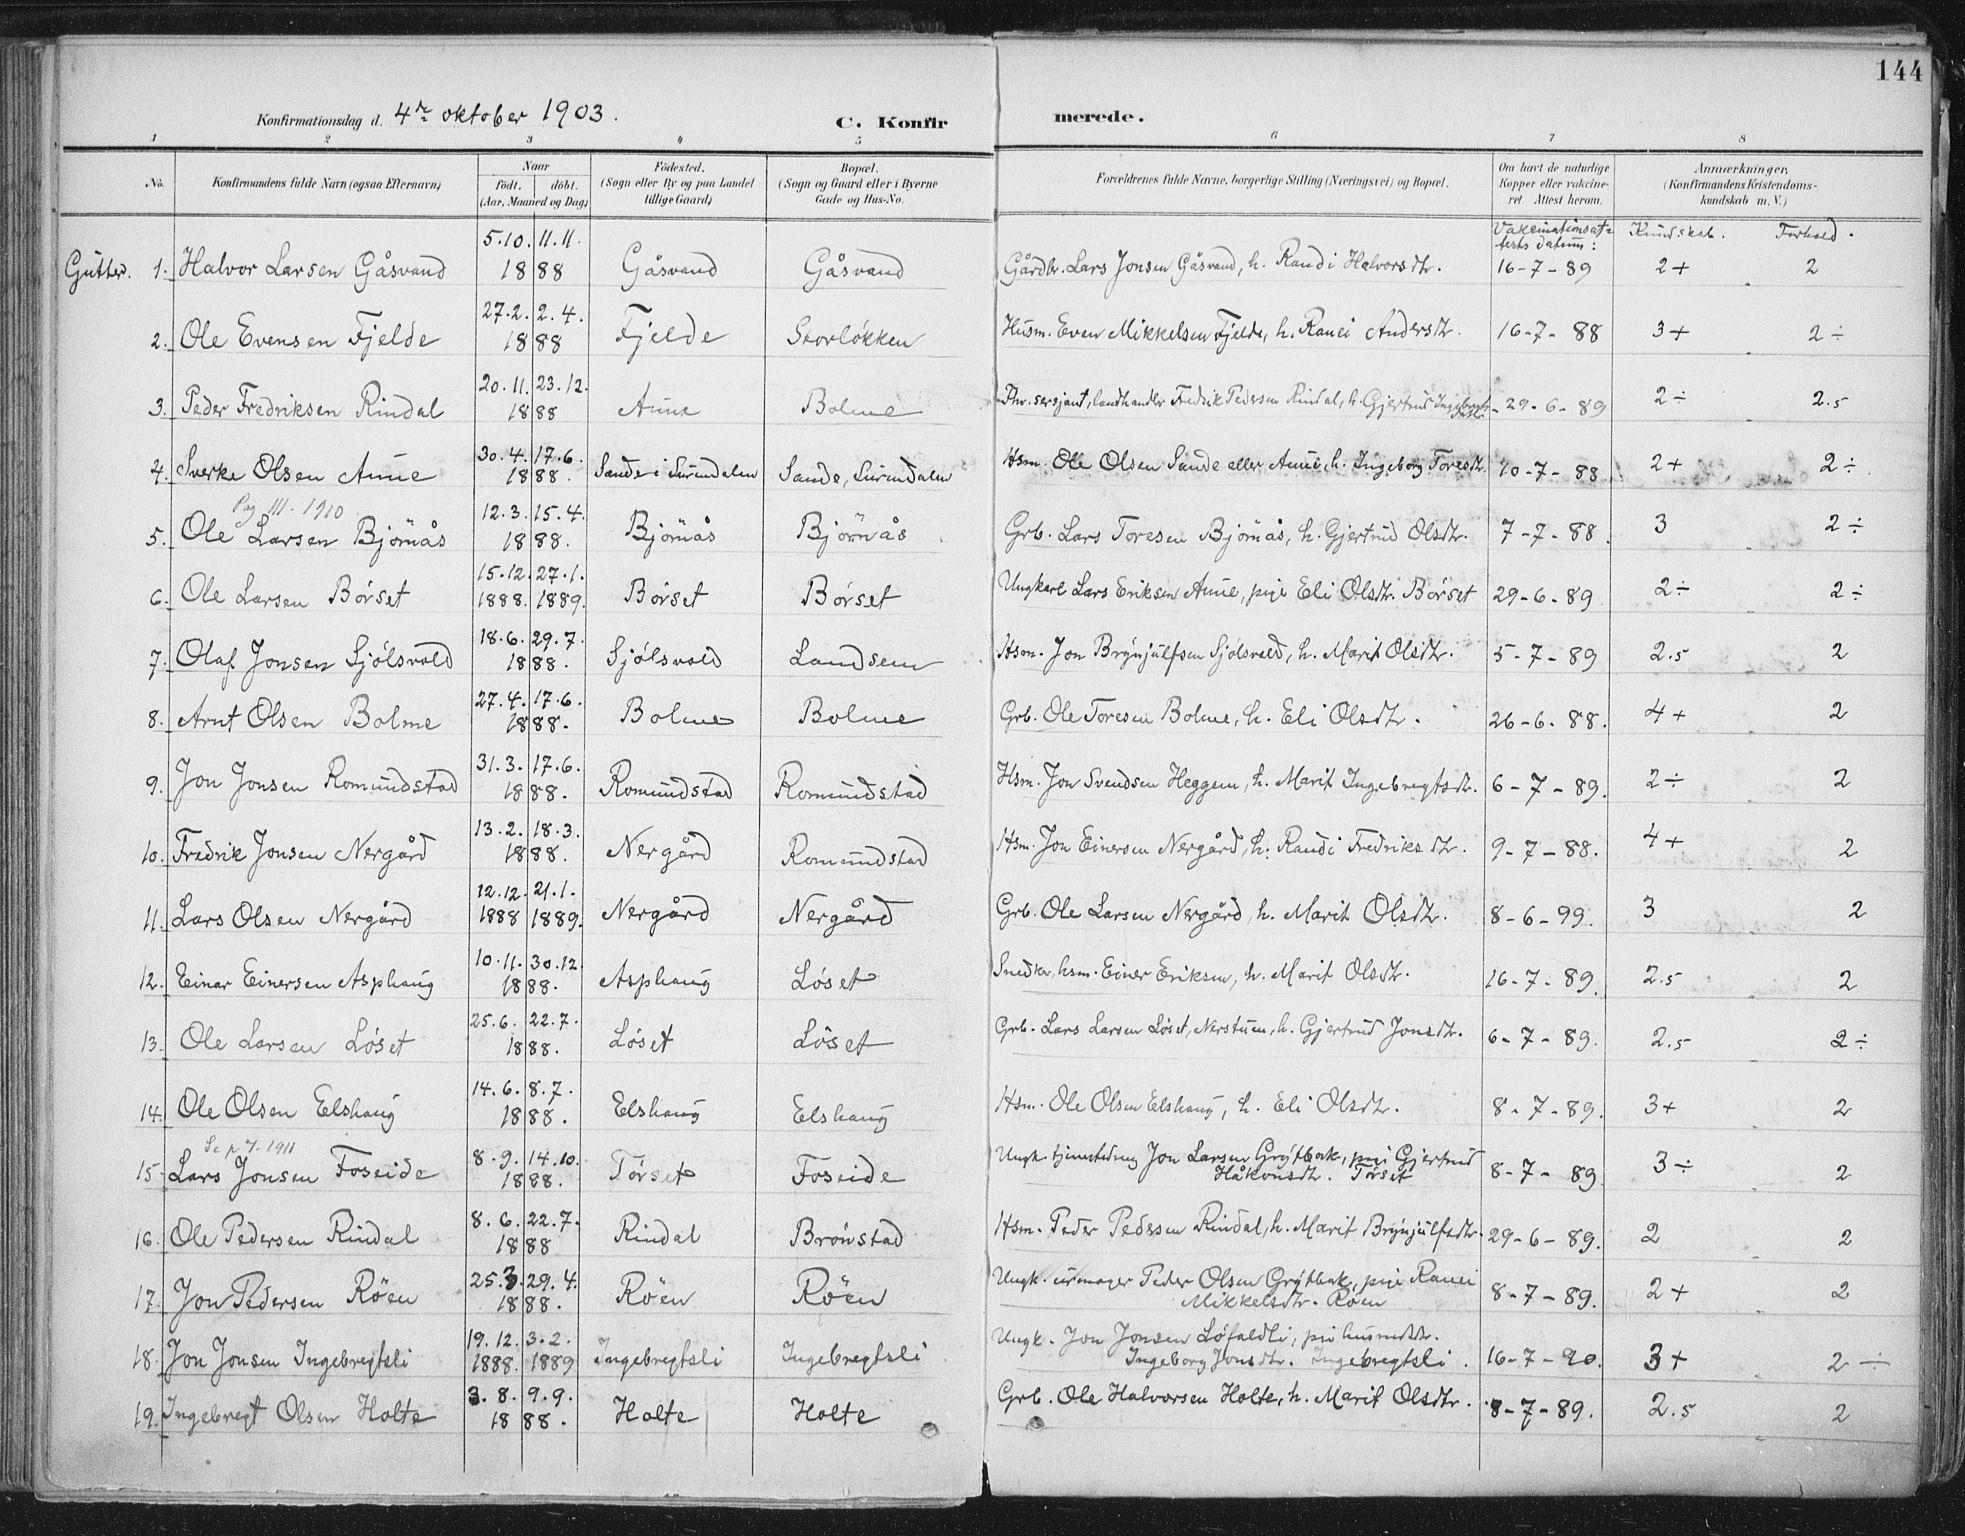 144
Konfirmationsdag d. 4de oktober 1903.
C. Konfir merede.
1 2 3 4 5 6 7 8
No. Konfirmandens fulde Navn (ogsaa Efternavn) Naar födt. döbt. (Aar, Maaned og Dag) Födested. (Sogn eller By og paa Landet tillige Gaard) Bopæl. (Sogn og Gaard eller i Byerne Gade og Hus-No. Forældrenes fulde Navne, borgerlige Stilling (Næringsvei) og Bopæl. Om havt de naturlige Kopper eller vakcineret. Attest herom. Anmærkninger. (Konfirmandens Kristendomskundskab m. V.)
Vakcinationsattests datum: Kundskab. Forhold.
Gutter. 1. Halvor Larsen Gåsvand 5.10. 11.11. 1888 Gåsvand Gåsvand Gårdbr. Lars Jonsen Gåsvand, h. Randi Halvorsdtr. 16-7-89 2+ 2
2. Ole Evensen Fjelde 27.2. 2.4. 1888 Fjelde Storløkken Husm. Even Mikkelsen Fjelde, h. Ranei Andersdtr. 16-7-88 3+ 2÷
3. Peder Fredriksen Rindal 20.11. 23.12. 1888 Aune Bolme sersjant, landhandler Fredrik Pedersen Rindal, h. Gjertrud 29-6-89 2÷ 2.5
4. Sverke Olsen Aune 30.4. 17.6. 1888. Sande i Surendalen Sande, Surendalen Hsm. Ole Olsen Sande eller Aune, h. Ingeborg Toresdtr. 10-7-88 2+ 2÷
Pag 111. 1910
5. Ole Larsen Bjørnås 12.3. 15.4. 1888. Bjørnås Bjørnås Grb. Lars Toresen Bjørnås, h. Gjertrud Olsdtr. 7-7-88. 3 2÷
6. Ole Larsen Börset 15.12. 27.1. 1888. 1889. Börset Börset Ungkarl Lars Eriksen Aune, pige Eli Olsdtr. Börset 29-6-89 2÷ 2÷
7. Olaf Jonsen Sjölsvold 18.6. 29.7. 1888. Sjölsvold Landsem Hsm. Jon Brynjulfsen Sjölsvold, h. Marit Olsdtr. 5-7-89 2.5 2
8. Arnt Olsen Bolme 27.4. 17.6. 1888. Bolme Bolme Grb. Ole Toresen Bolme, h. Eli Olsdtr. 26-6-88. 4+ 2
9. Jon Jonsen Romundstad 31.3. 17.6. 1888. Romundstad Romundstad Hsm. Jon Svendsen Heggem, h. Marit Ingebregtsdtr. 6-7-89. 2÷ 2
10. Fredrik Jonsen Nergård 13.2. 18.3. 1888. Nergård Romundstad Hsm. Jon Einersen Nergård, h. Randi Fredriksdtr. 9-7-88. 4+ 2
11. Lars Olsen Nergård 12.12. 21.1. 1888 1889. Nergård Nergård Grb. Ole Larsen Nergård, h. Marit Olsdtr. 8-6-99. 3 2
12. Einar Einersen Asphaug 10.11. 30.12. 1888. Asphaug Löset Snedker, hsm. Einer Eriksen, h. Marit Olsdtr. 16-7-89. 2.5 2
13. Ole Larsen Löset 25.6. 22.7. 1888. Löset Löset Grb. Lars Larsen Löset, Nerstuen, h. Gjertrud Jonsdtr. 6-7-89. 2.5 2÷
14. Ole Olsen Elshaug 14.6. 8.7. 1888. Elshaug Elshaug Hsm. Ole Olsen Elshaug, h. Eli Olsdtr. 8-7-89. 3+ 2
Se p 7. 1911
15. Lars Jonsen Foseide 8.9. 14.10. 1888. Törset Foseide Ungk. Jon Larsen Grytbak, pige Gjertrud
Håkonsdtr. Törset 8-7-89. 3÷ 2
16. Ole Pedersen Rindal 8.6. 22.7. 1888 Rindal Brönstad Hsm. Peder Pedersen Rindal, h. Marit Brynjulfsdtr. 29-6-89. 2 2
17. Jon Pedersen Röen 25.3. 29.4. 1888. Röen Röen Ungk. urmager Peder Olsen Grytbak, pige Ranei
Mikkelsdtr. Röen 8-7-89. 2+ 2
18. Jon Jonsen Ingebregtsli 19.12. 3.2. 1888. 1889 Ingebregtsli Ingebregtsli Ungk. Jon Jonsen Löfaldli, pige
Ingeborg Jonsdtr. Ingebregtsli. 16-7-90. 3+ 2÷
19. Ingebregt Olsen Holte 3.8. 9.9. 1888. Holte Holte Grb. Ole Halvorsen Holte, h. Marit Olsdtr. 8-7-89. 2.5 2